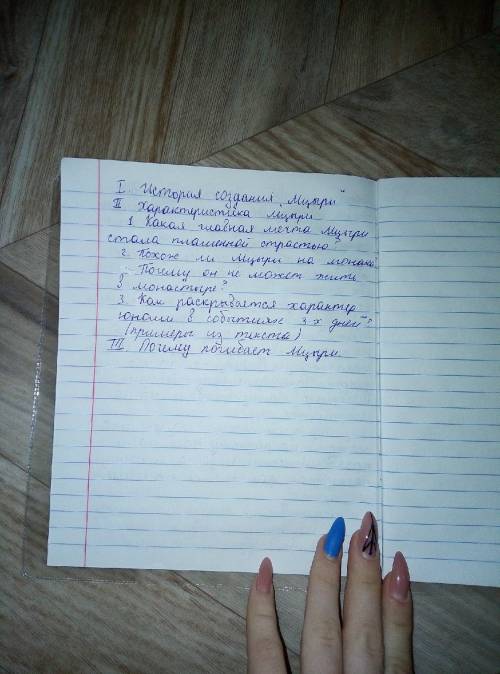 I История создания „Мцыри"
II Характеристика Мцыри
1. Какая главная мечта Мцыри
стала пламенной страстью?
2. Похож ли Мцыри на монаха
Почему он не может жить
в монастыре?
3. Как раскрывается характер
юноши в событиях 3х дней?
(примеры из текста)
III Почему погибает Мцыри